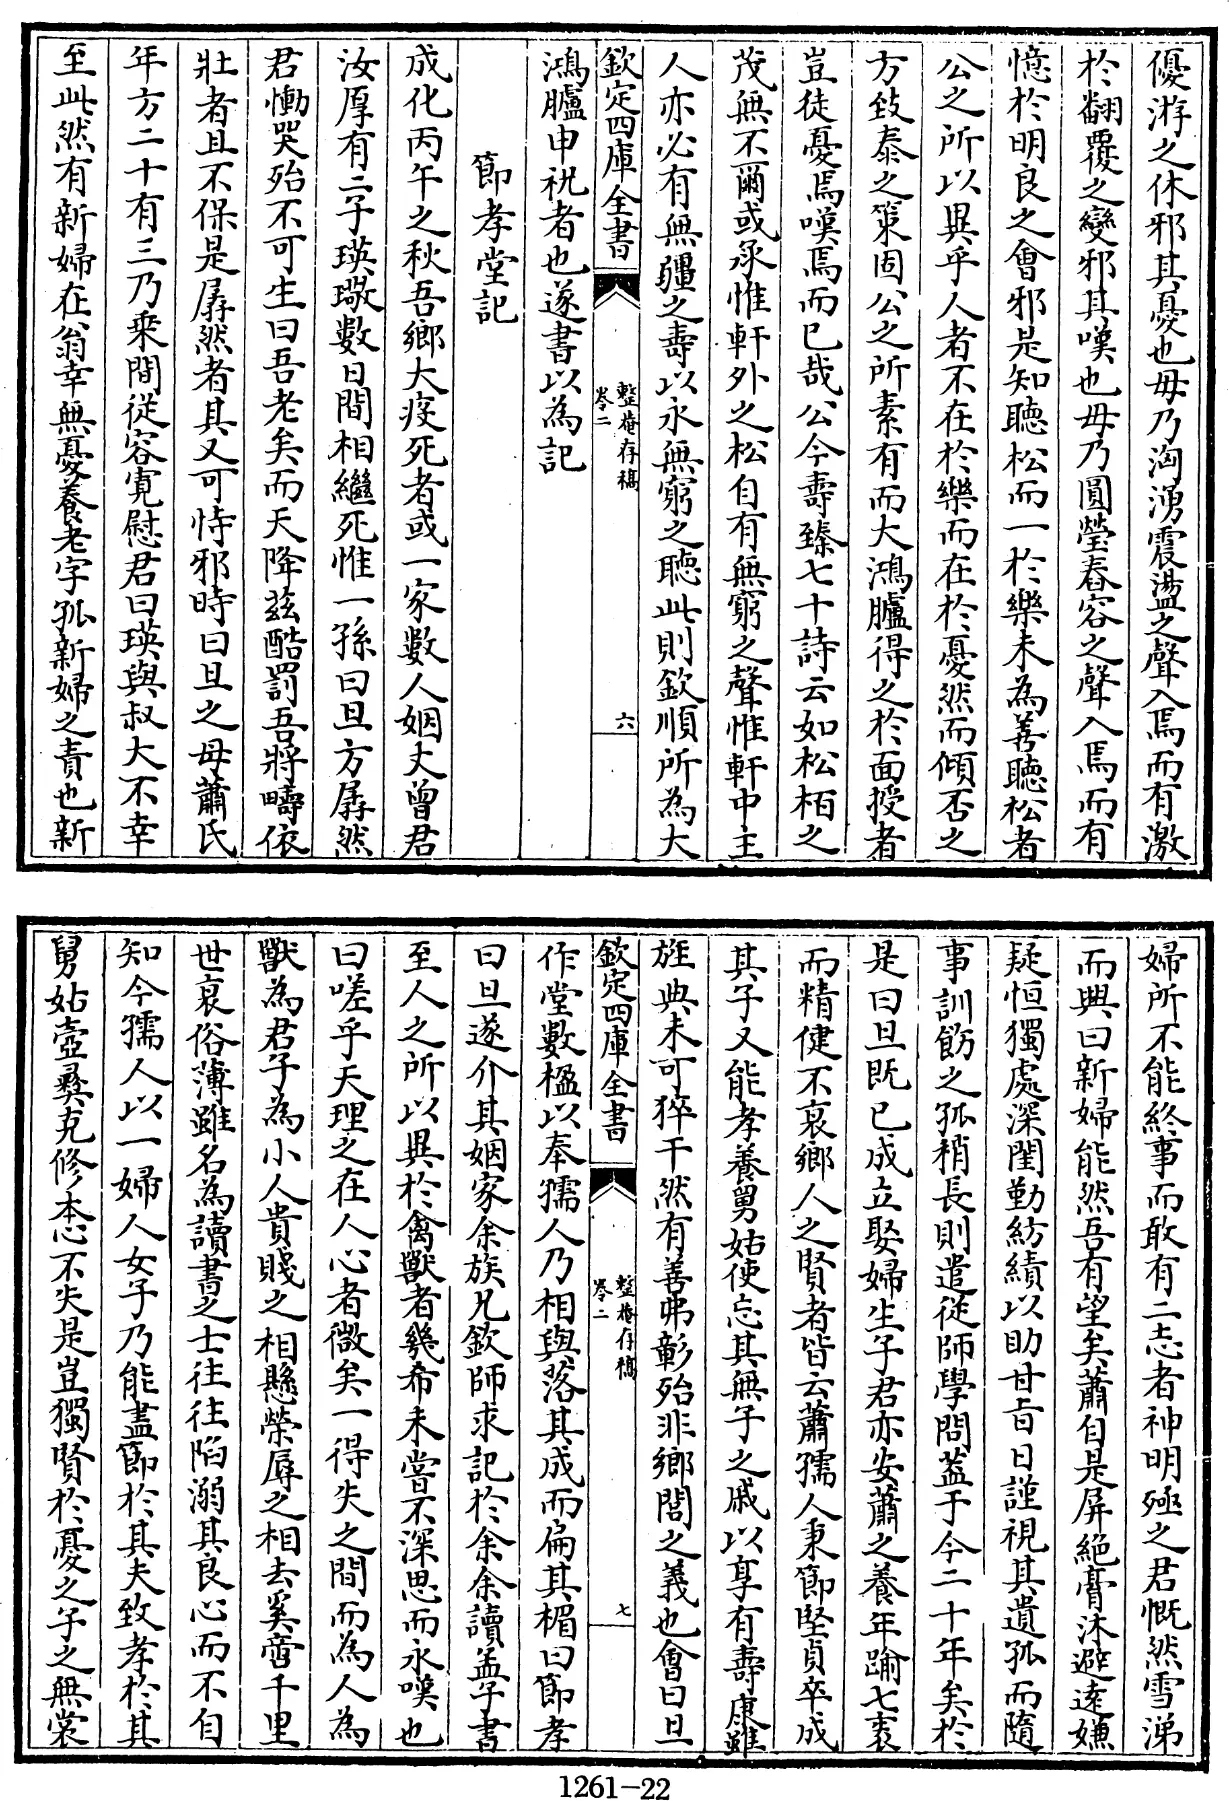 優游之休邪其憂也毋乃洶湧震盪之聲入焉而有激
於翻覆之變邪其嘆也毋乃圓瑩舂容之聲入焉而有
憶於明良之會邪是知聽松而一於樂未為善聽松者
公之所以異乎人者不在於樂而在於憂然而傾否之
方致泰之策固公之所素有而大鴻臚得之於面授者
豈徒憂焉嘆焉而已哉公今壽臻七十詩云如松栢之
茂無不爾或承惟軒外之松自有無窮之聲惟軒中主
人亦必有無疆之壽以永無窮之聽此則欽順所為大
欽定四庫全書
整菴存稿
卷二
六
鴻臚申祝者也遂書以為記
節孝堂記
成化丙午之秋吾鄉大疫死者或一家數人姻丈曾君
汝厚有二子瑛璥數日間相繼死惟一孫曰旦方孱然
君慟哭殆不可生曰吾老矣而天降茲酷罰吾將疇依
壯者且不保是孱然者其又可恃邪時曰旦之母蕭氏
年方二十有三乃乘間從容寬慰君曰瑛與叔大不幸
至此然有新婦在翁幸無憂養老字孤新婦之責也新
婦所不能終事而敢有二志者神明殛之君慨然雪涕
而興曰新婦能然吾有望矣蕭自是屏絕膏沐避遠嫌
疑恒獨處深閨勤紡績以助甘旨日謹視其遺孤而隨
事訓飭之孤稍長則遣從師學問蓋于今二十年矣於
是曰旦既已成立娶婦生子君亦安蕭之養年踰七袠
而精健不衰鄉人之賢者皆云蕭孺人秉節堅貞卒成
其子又能孝養舅姑使忘其無子之戚以享有壽康雖
旌典未可猝干然有善弗彰殆非鄉閭之義也會曰旦
欽定四庫全書
整菴存稿
卷二
七
作堂數楹以奉孺人乃相與落其成而扁其楣曰節孝
曰旦遂介其姻家余族兄欽師求記於余余讀孟子書
至人之所以異於禽獸者幾希未嘗不深思而永嘆也
曰嗟乎天理之在人心者微矣一得失之間而為人為
獸為君子為小人貴賤之相懸榮辱之相去奚啻千里
世衰俗薄雖名為讀書之士往往陷溺其良心而不自
知今孺人以一婦人女子乃能盡節於其夫致孝於其
舅姑壼彛克修本心不失是豈獨賢於憂之子之無裳
1261-22